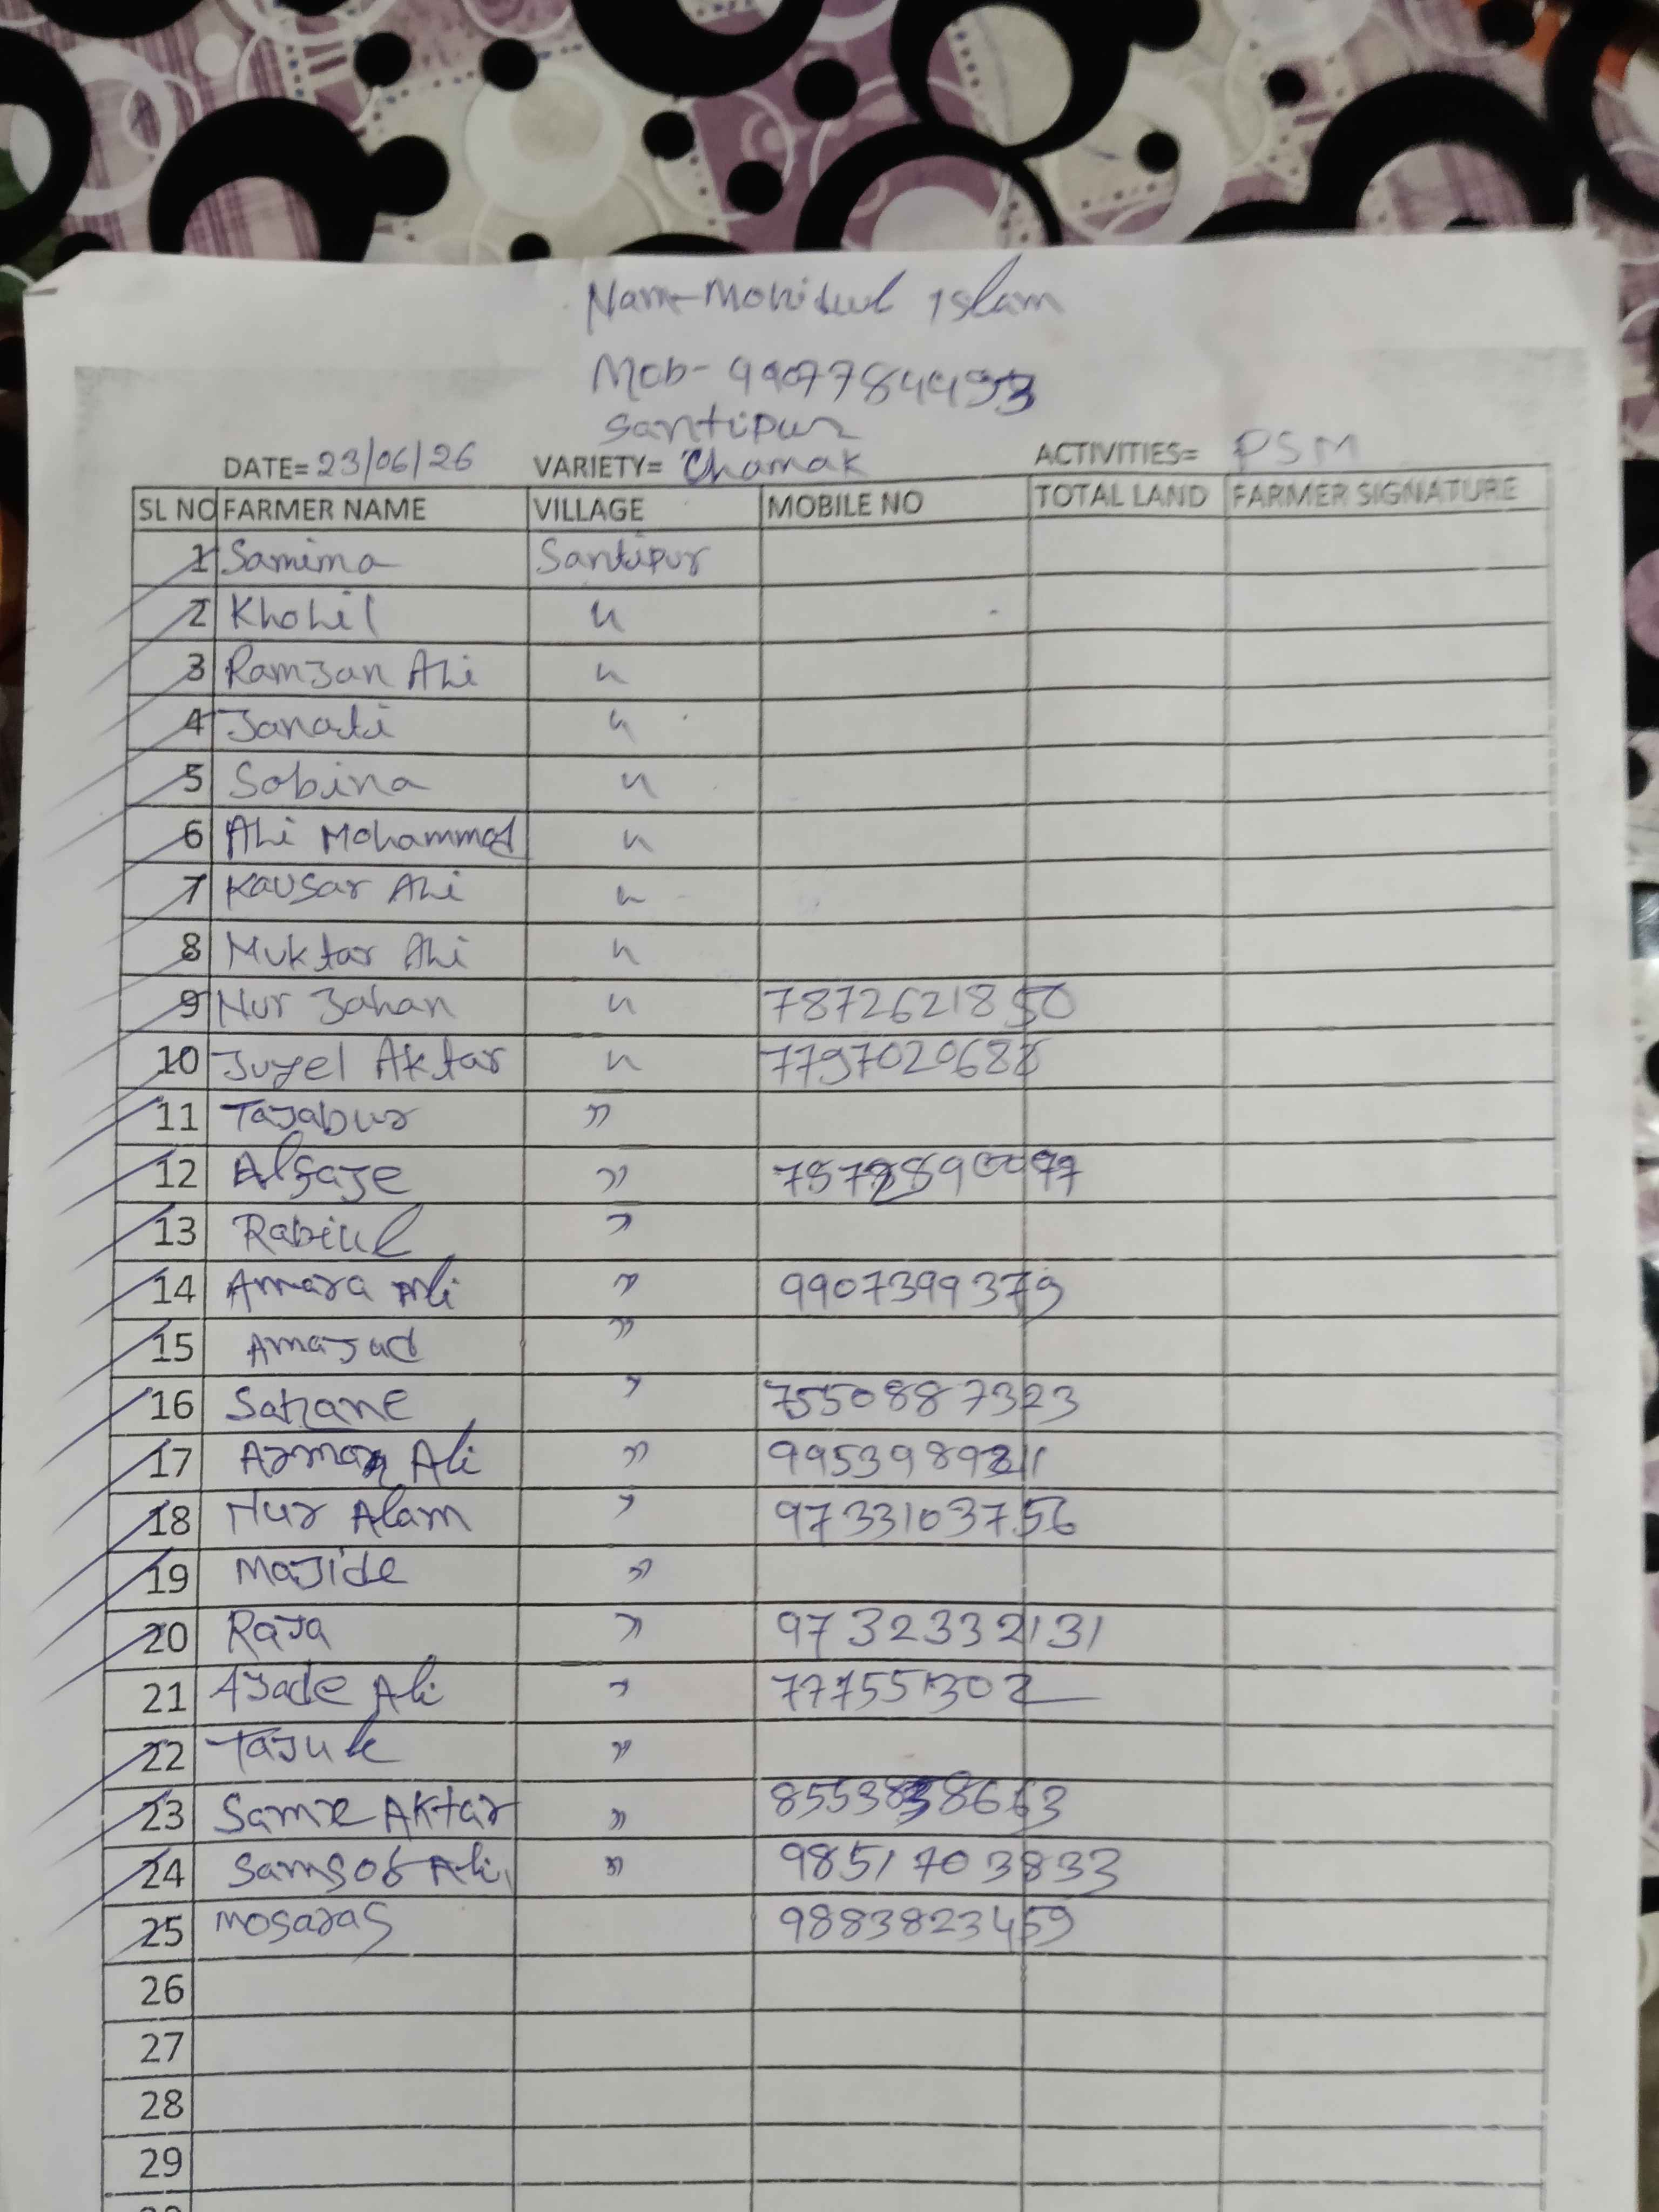 Name-Mohidul Islam
Mob-
Santipur
DATE= 23/06/26 VARIETY= Chamak ACTIVITIES= PSM
SL NO FARMER NAME VILLAGE MOBILE NO TOTAL LAND FARMER SIGNATURE
1 Samima Santipur
2 Khohil "
3 Ramjan Ali "
4 Janati "
5 Sabina "
6 Ali Mohammad "
7 Kausar Ali "
8 Muktar Ali "
9 Nur Jahan " 7872621850
10 Juyel Aktar " 7797020688
11 Tajabur "
12 "
13 Rabiul "
14 Amara Ali " 9907399379
15 Amajad "
16 " 7550887323
17 Arman Ali "
18 Nur Alam " 9733103756
19 Majide "
20 Raja " 9732332131
21 Ajade Ali "
22 Tajul "
23 Aktar "
24 Ali " 9851703833
25 9883823459
26
27
28
29